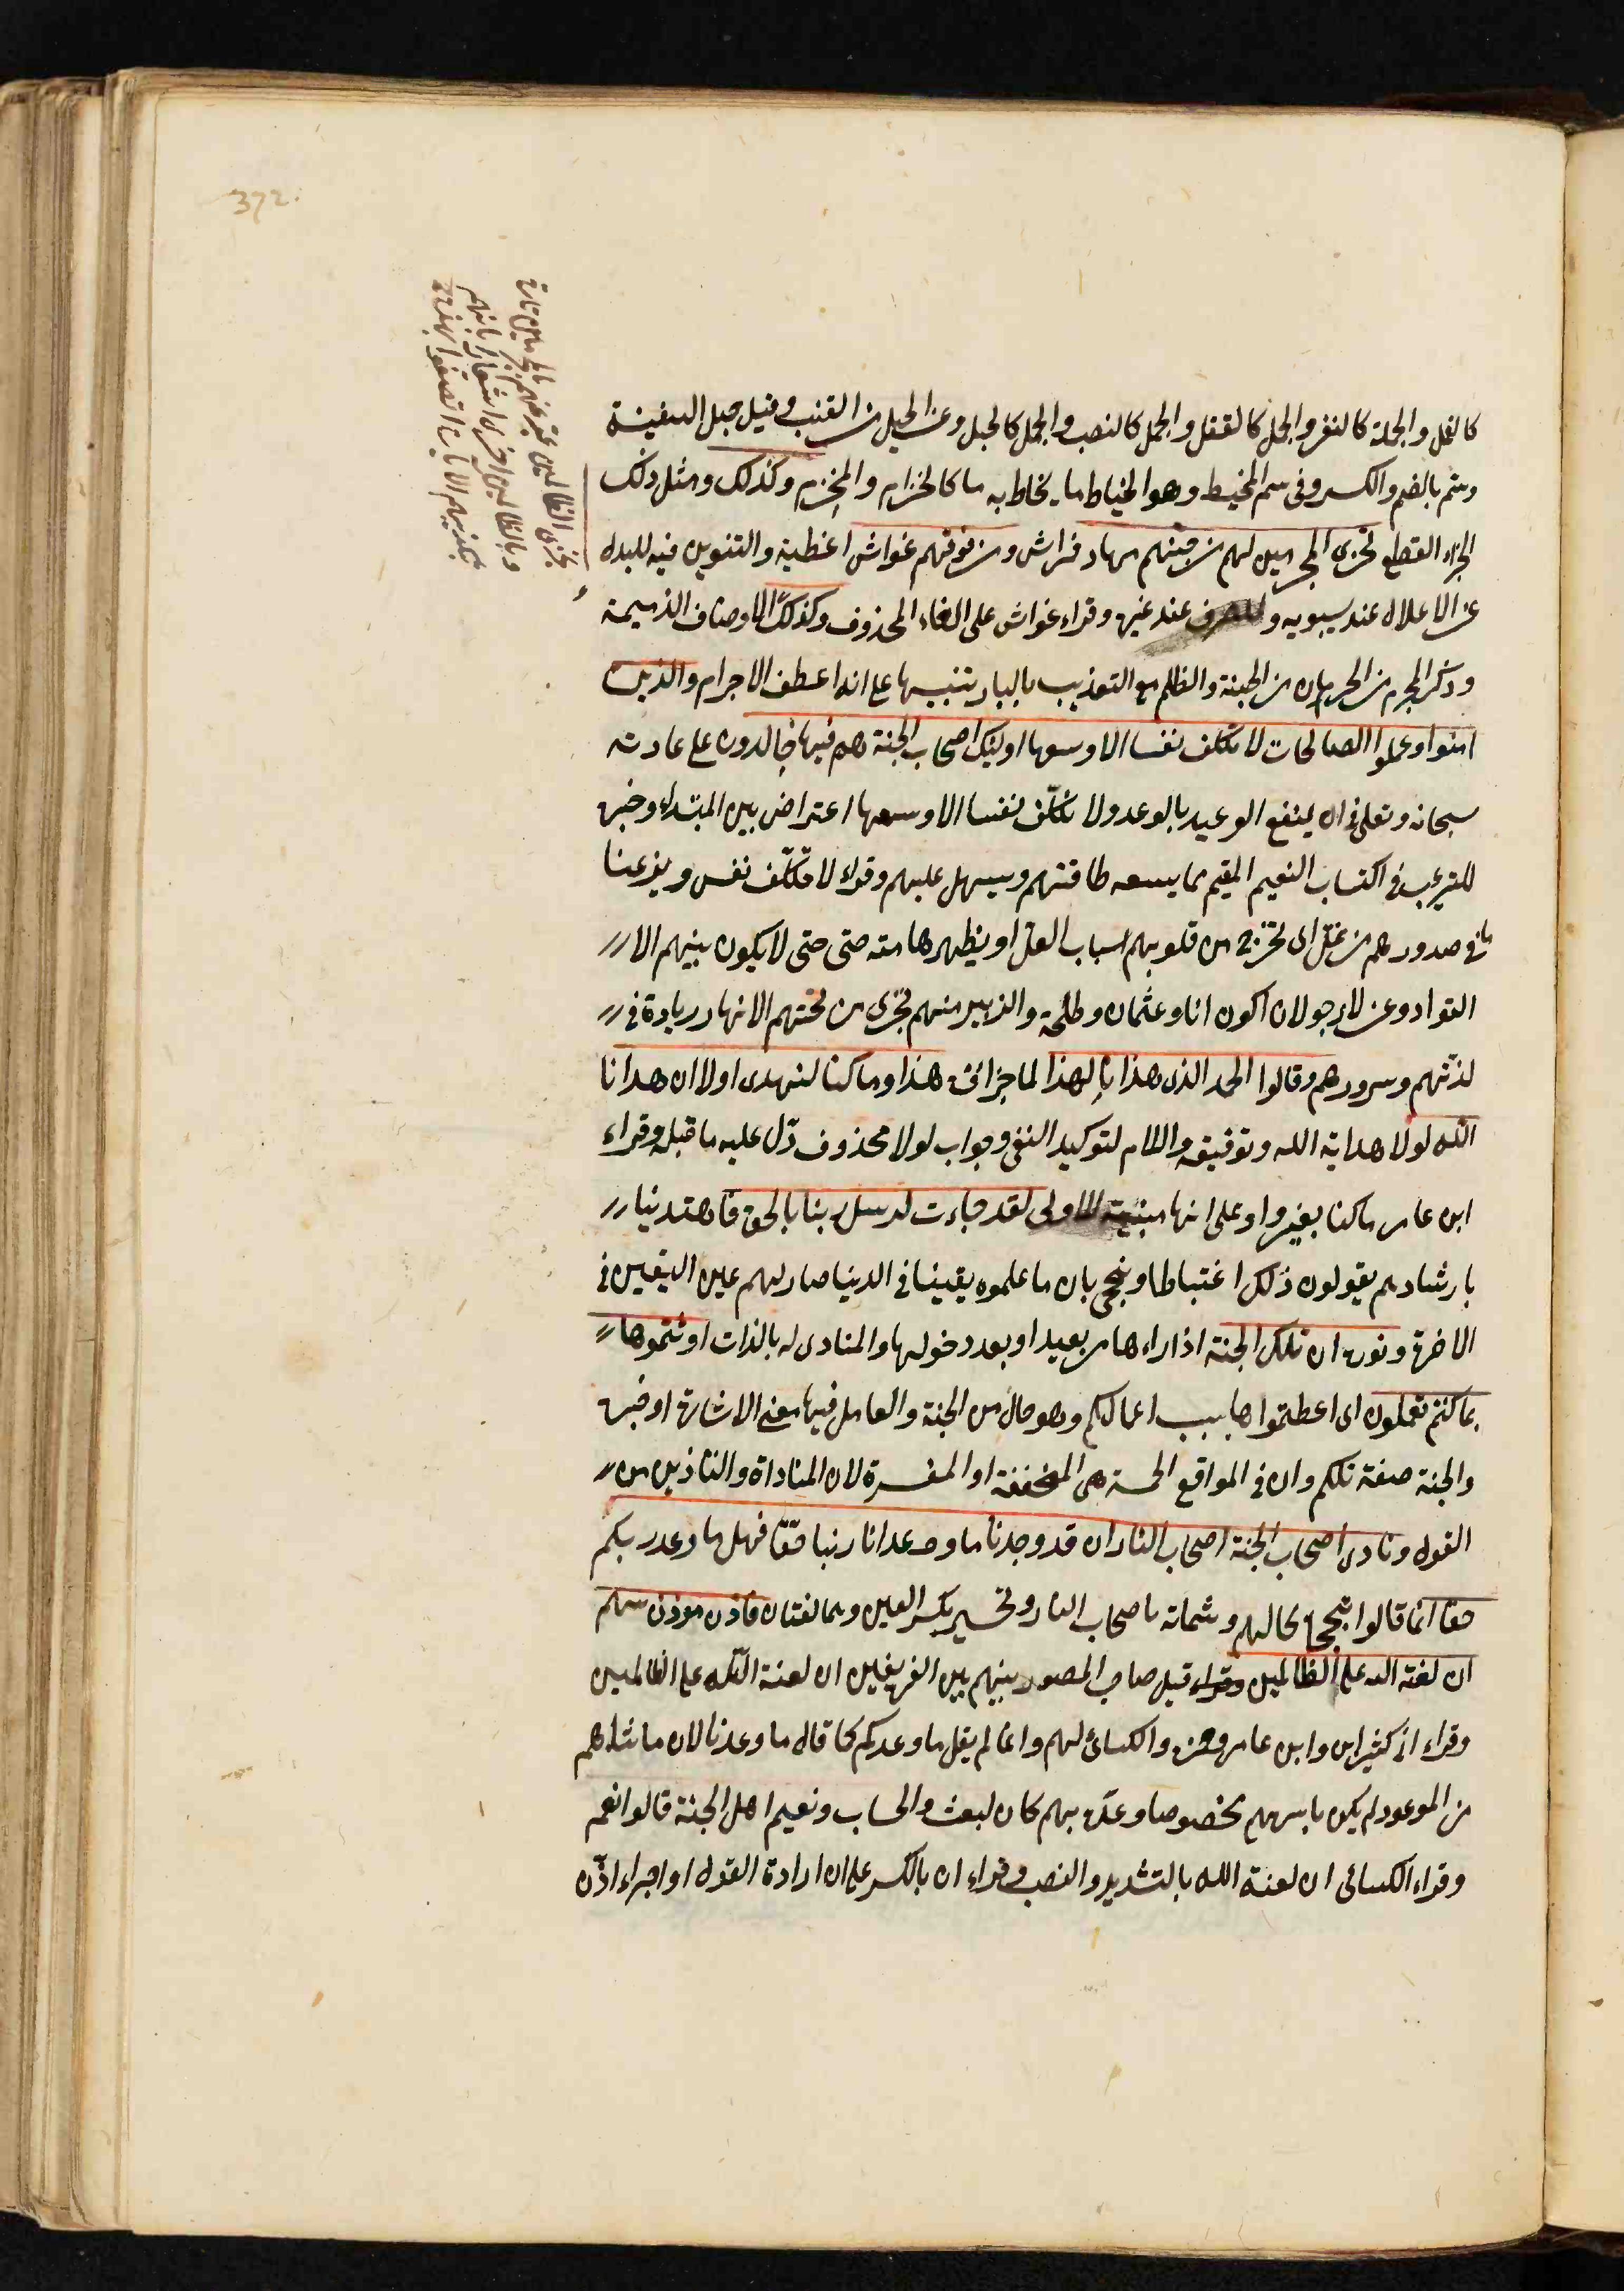 372
نجزى الظالمين عبر عنهم بالمجرمين تارة
وبالظالمين اخرى اشعارا بانهم
بتكذيبهم الايات اتصفوا بهذه
كالنمل والجملة كالنفر والجمل كالقفل والجمل كالنصب والجمل كالحبل وعن الحبل من القنب وقيل حبل السفينة
وسم بالضم والكسر وفى سم المخيط وهو الخياط ما يخاط به ما كالحزام والمحزم وكذلك ومثل ذلك
الجزاء الفظيع نجزى المجرمين لهم من جهنم مهاد فراش ومن فوقهم غواش اغطية والتنوين فيه للبدل
عن الاعلال عند سيبويه وللصرف عند غيره وقراء غواش على الغاء المحذوف وكذلك الاوصاف الذميمة
وذكر الجرم من الحرمان من الجنة والظلم مع التعذيب بالنار تنبيها على انه اعظم الاجرام والذين
امنوا وعملوا الصالحات لا نكلف نفسا الا وسعها اوليك اصحاب الجنة هم فيها خالدون على عادته
سبحانه وتعلى فى ان يشفع الوعيد بالوعد ولا نكلف نفسا الا وسعها اعتراض بين المبتداء وخبره
للترغيب فى اكتساب النعيم المقيم بما يسعه طاقتهم ويسهل عليهم وقراء لا تكلف نفس ونزعنا
ما فى صدورهم من غل اى نخرج من قلوبهم اسباب الغل او نطهرها منه حتى حتى لا يكون بينهم الا
التواد وعن لارجو لان اكون انا وعثمان وطلحة والزبير منهم تجرى من تحتهم الانهار زيادة فى
لذتهم وسرورهم وقالوا الحمد الذى هدانا لهذا لما جزائه هذا وما كنا لنهتدى اولا ان هدانا
الله لولا هداية الله وتوفيقه واللام لتوكيد النفى وجواب لولا محذوف دل عليه ما قبله وقراء
ابن عامر ما كنا بغير واو على انها مبينة للاولى لقد جاءت لرسل ربنا بالحق فاهتدينا
بارشادهم يقولون ذلك اغتباطا وتبجحا بان ما علموه يقينا فى الدنيا صار لهم عين اليقين فى
الاخرة ونودوا ان تلكم الجنة اذا راءها من بعيد او بعد دخولها والمنادى له بالذات اورثتموها
بما كنتم تعملون اى اعطيتموها بسبب اعمالكم وهو حال من الجنة والعامل فيها معنى الاشارة او خبره
والجنة صفة تلكم وان فى المواقع الخمسة هى المخففة او المفسرة لان المناداة والتاذين من
القول ونادى اصحاب الجنة اصحاب النار ان قد وجدنا ما وعدنا ربنا حقا فهل ما وعد ربكم
حقا انما قالوا تبجحا بحالهم وشماتة باصحاب النار وتحسير بكسر العين وهما لغتان فاذن موذن بينهم
ان لعنة الله على الظالمين وقراء قيل صاحب الصور بينهم بين الفريقين ان لعنة الله على الظالمين
وقراء ابن كثير وابن عامر وحمزه والكسائى لهم وانما لم يقل ما وعدكم كما قال ما وعدنا لان ما شاءهم
من الموعود لم يكن باسرهم مخصوصا وعده بهم كان لبعث والحساب ونعيم اهل الجنة قالوا نعم
وقراء الكسائى ان لعنة الله بالتشديد والنصب وقراء ان بالكسر على ان ارادة القول او اجراء اذن